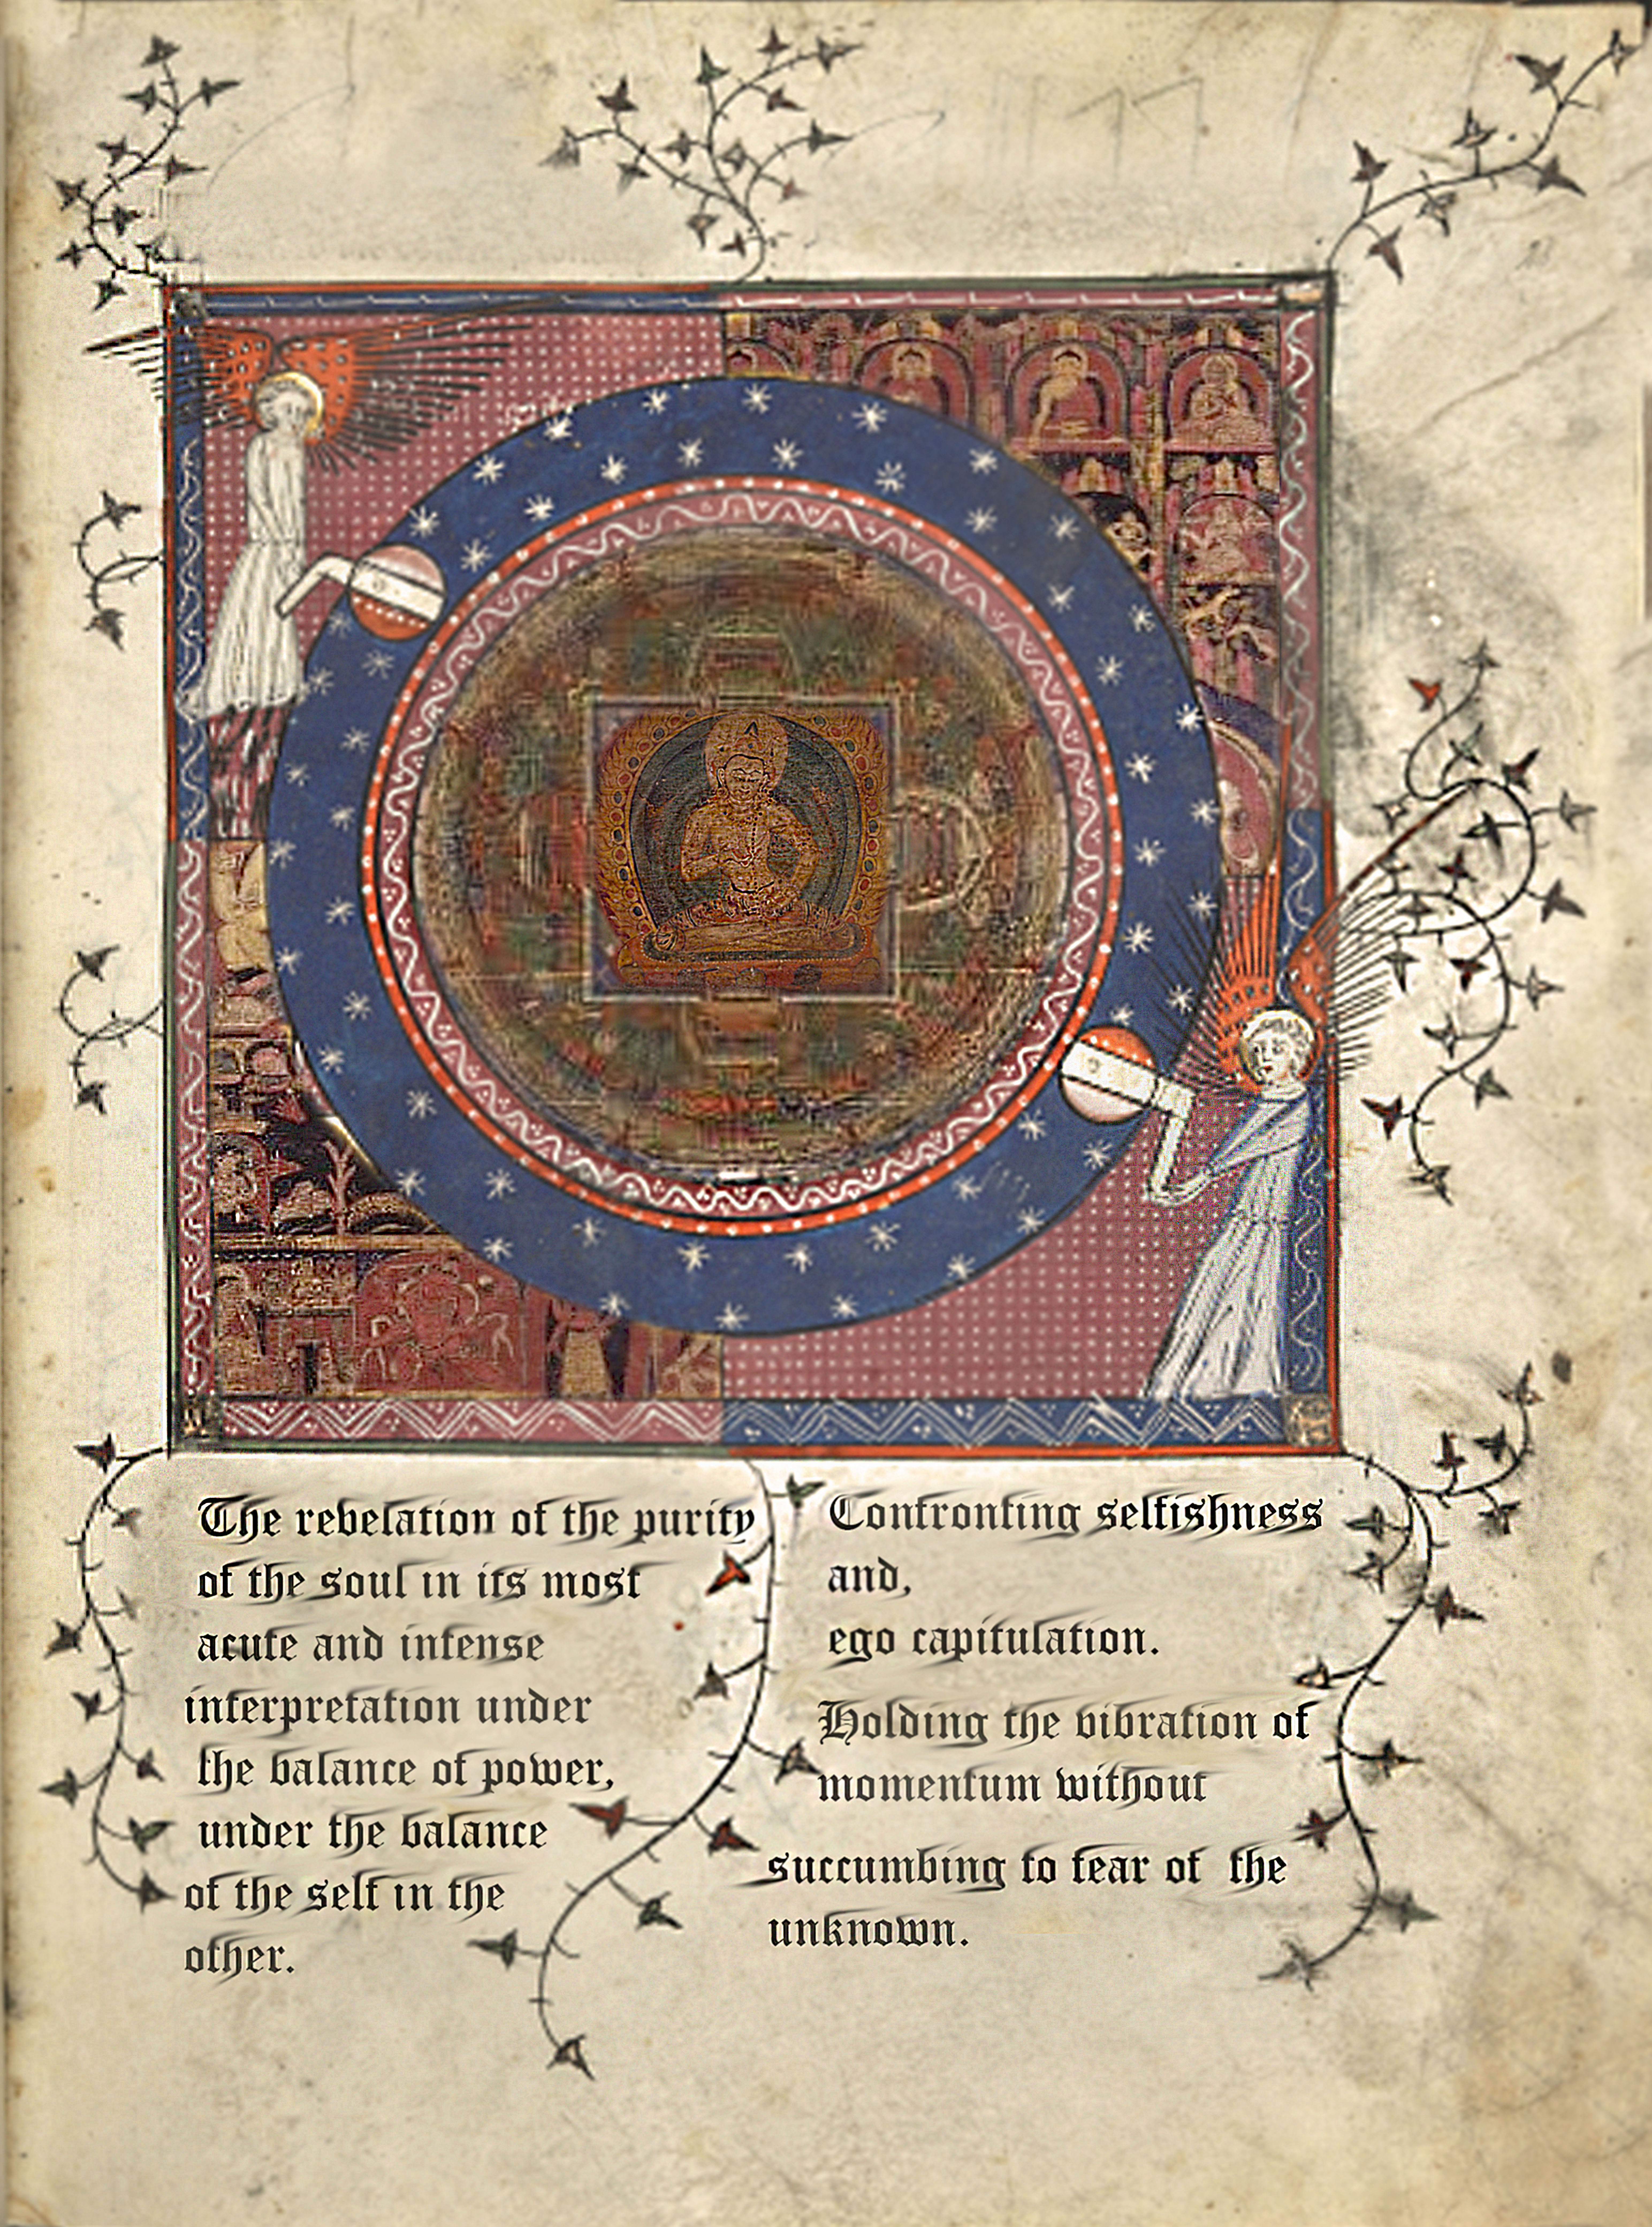 The revelation of the purity
of the soul in its most
acute and intense
interpretation under
the balance of power,
under the balance
of the self in the
other.
Confronting selfishness
and,
ego capitulation.
Holding the vibration of
momentum without
succumbing to fear of the
unknown.